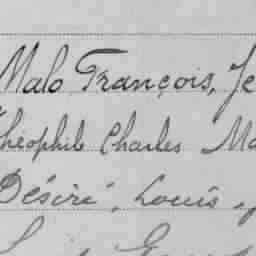 Malo François, Je
Théophile Charles Ma
Désiré, Louis